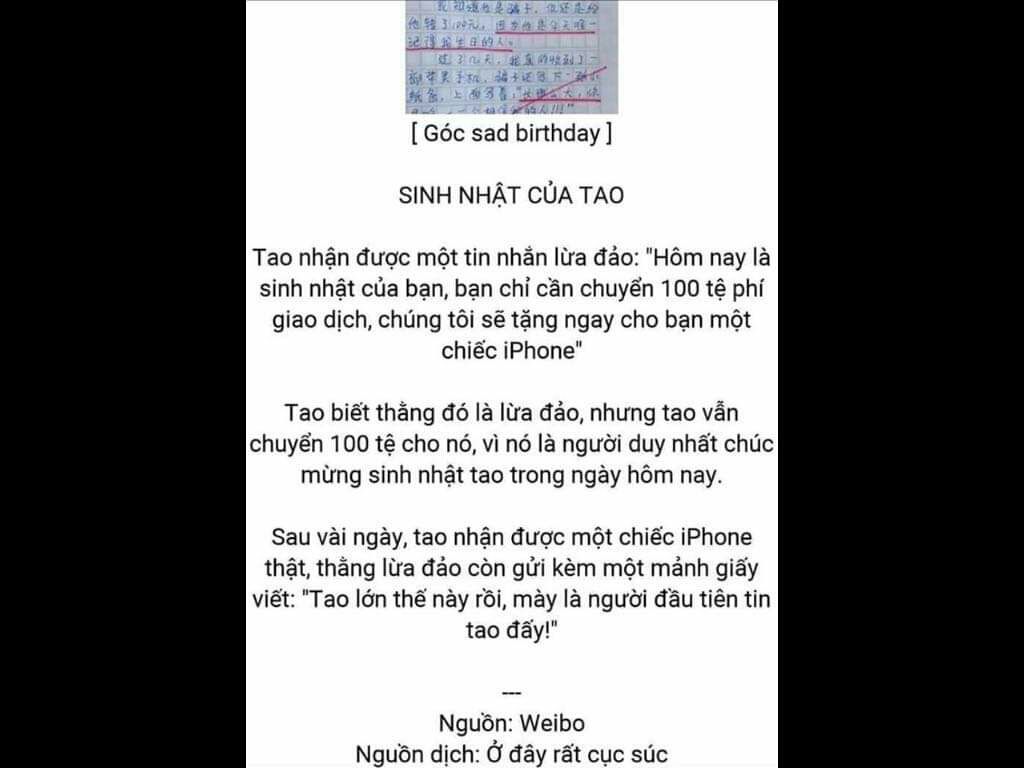 他转了100元，因为他是今天唯一
记得我生日的人。
[ Góc sad birthday ]
SINH NHẬT CỦA TAO
Tao nhận được một tin nhắn lừa đảo: "Hôm nay là
sinh nhật của bạn, bạn chỉ cần chuyển 100 tệ phí
giao dịch, chúng tôi sẽ tặng ngay cho bạn một
chiếc iPhone"
Tao biết thằng đó là lừa đảo, nhưng tao vẫn
chuyển 100 tệ cho nó, vì nó là người duy nhất chúc
mừng sinh nhật tao trong ngày hôm nay.
Sau vài ngày, tao nhận được một chiếc iPhone
thật, thằng lừa đảo còn gửi kèm một mảnh giấy
viết: "Tao lớn thế này rồi, mày là người đầu tiên tin
tao đấy!"
---
Nguồn: Weibo
Nguồn dịch: Ở đây rất cục súc